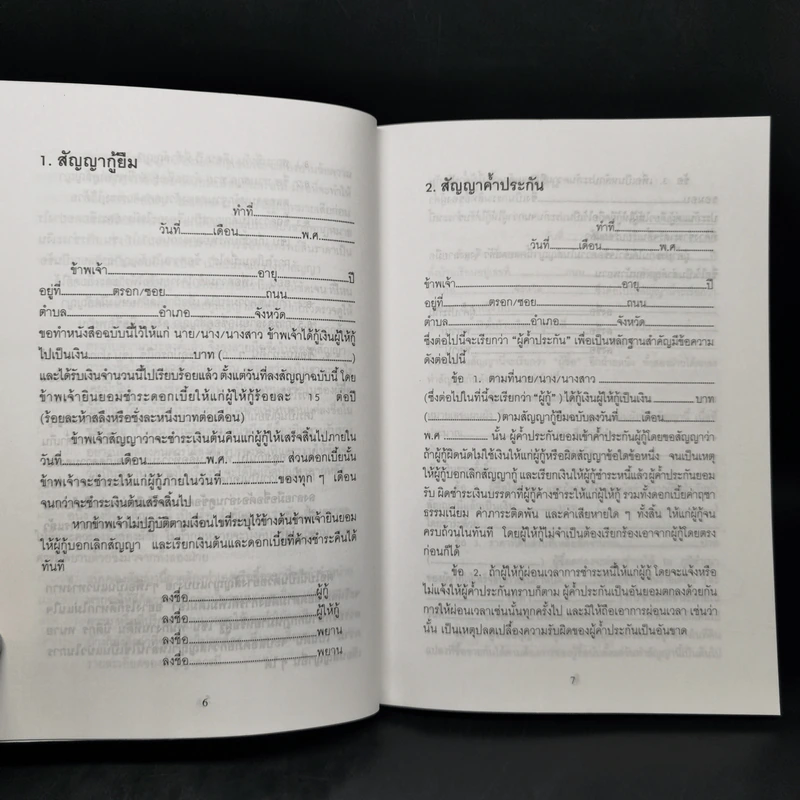 1. สัญญากู้ยืม
ทำที่
วันที่ เดือน พ.ศ.
ข้าพเจ้า อายุ ปี
อยู่ที่ ตรอก/ซอย ถนน
ตำบล อำเภอ จังหวัด
ขอทำหนังสือฉบับนี้ไว้ให้แก่ นาย/นาง/นางสาว ข้าพเจ้าได้กู้เงินผู้ให้กู้
ไปเป็นเงิน บาท ( )
และได้รับเงินจำนวนนี้ไปเรียบร้อยแล้ว ตั้งแต่วันที่ลงสัญญาฉบับนี้ โดย
ข้าพเจ้ายินยอมชำระดอกเบี้ยให้แก่ผู้ให้กู้ร้อยละ 15 ต่อปี
(ร้อยละห้าสลึงหรือชั่งละหนึ่งบาทต่อเดือน)
ข้าพเจ้าสัญญาว่าจะชำระเงินต้นคืนแก่ผู้ให้กู้ให้เสร็จสิ้นไปภายใน
วันที่ เดือน พ.ศ. ส่วนดอกเบี้ยนั้น
ข้าพเจ้าจะชำระให้แก่ผู้ให้กู้ภายในวันที่ ของทุก ๆ เดือน
จนกว่าจะชำระเงินต้นเสร็จสิ้นไป
หากข้าพเจ้าไม่ปฏิบัติตามเงื่อนไขที่ระบุไว้ข้างต้นข้าพเจ้ายินยอม
ให้ผู้กู้บอกเลิกสัญญา และเรียกเงินต้นและดอกเบี้ยที่ค้างชำระคืนได้
ทันที
ลงชื่อ ผู้กู้
ลงชื่อ ผู้ให้กู้
ลงชื่อ พยาน
ลงชื่อ พยาน
6
2. สัญญาค้ำประกัน
ทำที่
วันที่ เดือน พ.ศ.
ข้าพเจ้า อายุ ปี
อยู่ที่ ตรอก/ซอย ถนน
ตำบล อำเภอ จังหวัด
ซึ่งต่อไปนี้จะเรียกว่า "ผู้ค้ำประกัน" เพื่อเป็นหลักฐานสำคัญมีข้อความ
ดังต่อไปนี้
ข้อ 1. ตามที่นาย/นาง/นางสาว
(ซึ่งต่อไปในที่นี้จะเรียกว่า "ผู้กู้") ได้กู้เงินผู้ให้กู้เป็นเงิน บาท
( )ตามสัญญากู้ยืมฉบับลงวันที่ เดือน
พ.ศ นั้น ผู้ค้ำประกันยอมเข้าค้ำประกันผู้กู้โดยขอสัญญาว่า
ถ้าผู้กู้ผิดนัดไม่ใช้เงินให้แก่ผู้ให้กู้หรือผิดสัญญาข้อใดข้อหนึ่ง จนเป็นเหตุ
ให้ผู้ให้กู้บอกเลิกสัญญากู้ และเรียกเงินให้ผู้กู้ชำระหนี้แล้วผู้ค้ำประกันยอม
รับ ผิดชำระเงินบรรดาที่ผู้กู้ค้างชำระให้แก่ผู้ให้กู้ รวมทั้งดอกเบี้ยค่าฤชา
ธรรมเนียม ค่าภาระติดพัน และค่าเสียหายใด ๆ ทั้งสิ้น ให้แก่ผู้กู้จน
ครบถ้วนในทันที โดยผู้ให้กู้ไม่จำเป็นต้องเรียกร้องเอาจากผู้กู้โดยตรง
ก่อนก็ได้
ข้อ 2. ถ้าผู้ให้กู้ผ่อนเวลาการชำระหนี้ให้แก่ผู้กู้ โดยจะแจ้งหรือ
ไม่แจ้งให้ผู้ค้ำประกันทราบก็ตาม ผู้ค้ำประกันเป็นอันยอมตกลงด้วยกัน
การให้ผ่อนเวลาเช่นนั้นทุกครั้งไป และมิให้ถือเอาการผ่อนเวลา เช่นว่า
นั้น เป็นเหตุปลดเปลื้องความรับผิดของผู้ค้ำประกันเป็นอันขาด
7